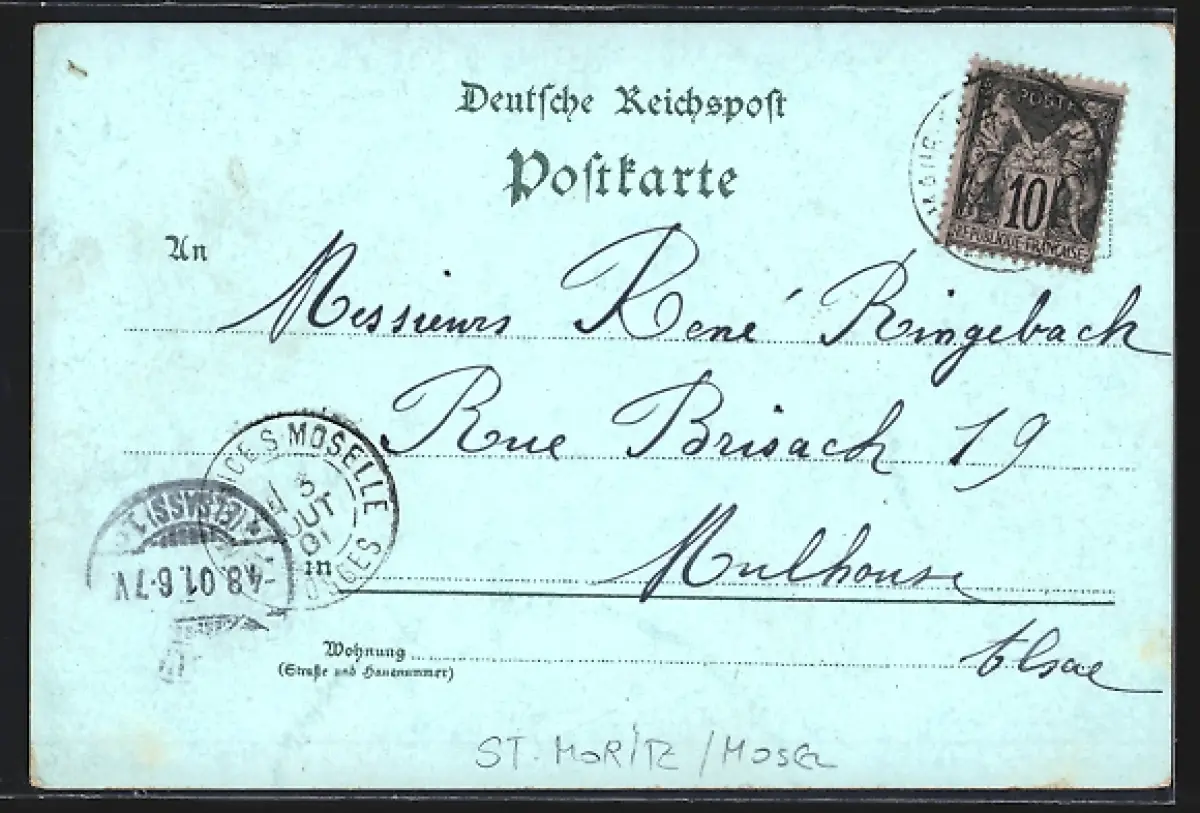 Deutsche Reichspost
Postkarte
POSTE
10
REPUBLIQUE FRANÇAISE
An
Messieurs René Ringebach
Rue Brisach 19
MOSELLE
3
01
VOSGES
(ELSASS) 1
4.8.01.6-7V
in
Mulhouse
Wohnung
(Straße und Hausnummer)
Elsac
ST. MORITZ / MOSEL